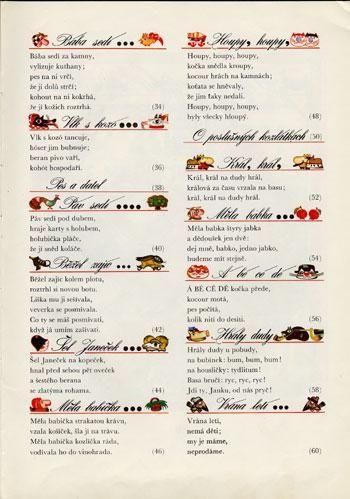 Bába sedí ...
Bába sedí za kamny,
vylizuje kuthany;
pes na ni vrčí,
že jí dolů strčí;
kohout na ni kokrhá,
že jí kožich roztrhá. (34)
Vlk s kozó ....
Vlk s kozó tancuje,
hóser jim bubnuje;
beran pivo vaří,
kohót hospodaří. (36)
Pes a datel (38)
Páv sedí ....
Páv sedí pod dubem,
hraje karty s holubem,
holubička pláče,
že jí sněd koláče. (40)
Běžel zajíc ....
Běžel zajíc kolem plotu,
roztrhl si novou botu.
Liška mu ji sešívala,
veverka se posmívala.
Co ty se máš posmívati,
když já umím zašívati. (42)
Šel Janeček ....
Šel Janeček na kopeček,
hnal před sebou pět oveček
a šestého berana
se zlatýma rohama. (44)
Měla babička ....
Měla babička strakatou krávu,
vzala košíček, šla jí na trávu.
Měla babička kozlíčka ráda,
vodívala ho do vinohrada. (46)
Houpy, houpy,
Houpy, houpy, houpy,
kočka snědla kroupy,
kocour hrách na kamnách;
koťata se hněvaly,
že jim taky nedali.
Houpy, houpy, houpy,
byly všecky hloupý. (48)
O poslušných kozlátkách (50)
Král, král,
Král, král na dudy hrál,
králová za času vzala na basu;
král, král na dudy hrál. (52)
Měla babka ...
Měla babka štyry jabka
a dědoušek jen dvě:
dej mně, babko, jedno jabko,
budeme mít stejně. (54)
A bé cé dé
Á BÉ CÉ DÉ kočka přede,
kocour motá,
pes počítá,
kolik nití do desíti. (56)
Hrály dudy
Hrály dudy u pobudy,
na bubínek: bum, bum, bum!
na housličky: tydlitum!
Basa bručí: ryc, ryc, ryc!
Jdi ty, Janku, od nás pryč! (58)
Vrána letí ...
Vrána letí,
nemá dětí;
my je máme,
neprodáme. (60)